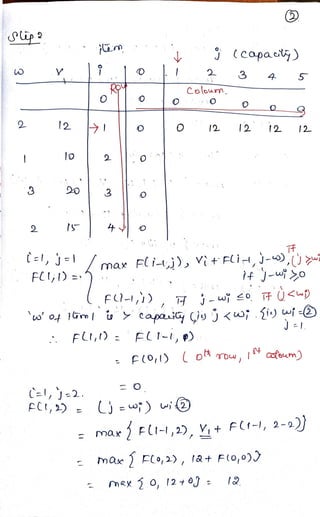 ②
Step 2
item
j (capacity)
w v i 0 1 2 3 4 5
Row Coloumn
0 0 0 0 0 0 0
2 12 → 1 0 0 12 12 12 12
1 10 2 0
3 20 3 0
2 15 4 0
i=1, j=1
F(1,1) =
max F(i-1,j), Vi + F(i-1, j-wi),
if j-wi ≥0
F(i-1,j), if j-wi ≤0. if (j<wi)
'w' of item 1 is > capacity (is) j < wi. {is} wi=②
j=1.
∴ F(1,1) = F(1-1, 1)
= F(0,1) ( 0th row, 1st coloum)
= 0.
i=1, j=2.
F(1,2) = (j = wi) wi ②
= max { F(1-1,2), V1 + F(1-1, 2-2)}
= max { F(0,2), 12+ F(0,0)}
= max { 0, 12+0} = 12.